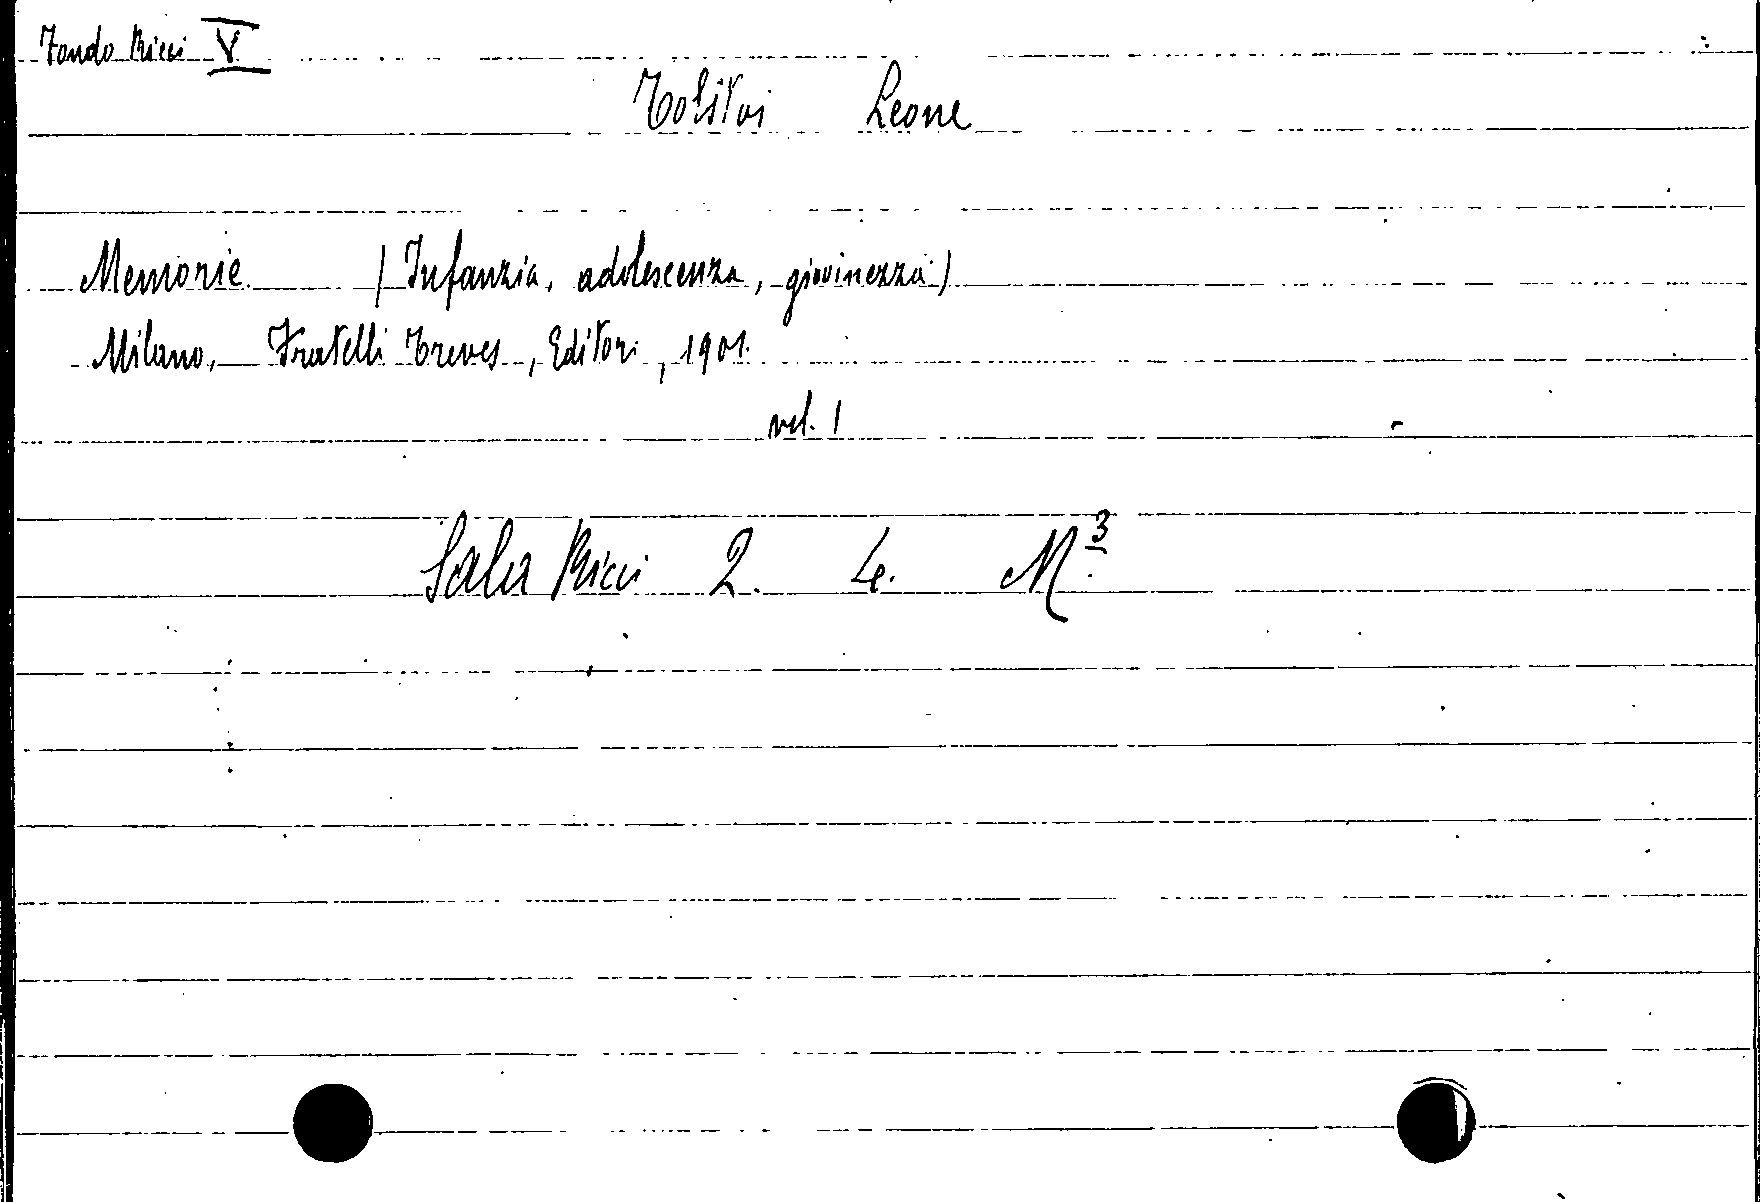 Fondo Ricci V
Tolstoi Leone
Memorie (Infanzia, adolescenza, giovinezza)
Milano, Fratelli Treves, Editori, 1901.
vol. 1
Sala Ricci 2. 4. M.3